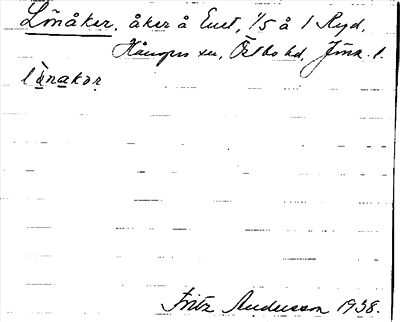 Lönåker, åker å Enet, 1/5 å 1 Ryd,
Kångers sn, Östbo hd, Jönk. l.
lànakər
Fritz Andersson 1938.